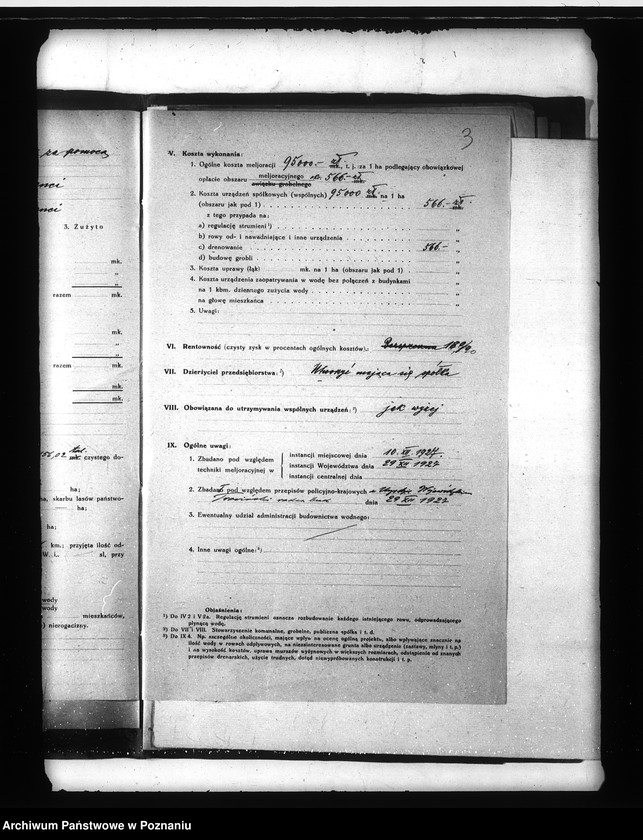 3
V. Koszta wykonania:
1. Ogólne koszta meljoracji 95000.- zł mk., t. j. za 1 ha podlegający obowiązkowej
opłacie obszaru meljoracyjnego 566.- zł mk.
związku grobelnego
2. Koszta urządzeń spółkowych (wspólnych) 95000 zł mk. na 1 ha
(obszaru jak pod 1) 566.- zł
z tego przypada na:
a) regulację strumieni¹) „
b) rowy od- i nawadniające i inne urządzenia „
c) drenowanie 566.- „
d) budowę grobli „
3. Koszta uprawy (łąk) mk. na 1 ha (obszaru jak pod 1) „
4. Koszta urządzenia zaopatrywania w wodę bez połączeń z budynkami
na 1 kbm. dziennego zużycia wody „
na głowę mieszkańca „
5. Uwagi:
VI. Rentowność (czysty zysk w procentach ogólnych kosztów).:
VII. Dzierżyciel przedsiębiorstwa: ²) Utworzyć mająca się spółka
VIII. Obowiązana do utrzymywania wspólnych urządzeń: ²) jak wyżej
IX. Ogólne uwagi:
1. Zbadano pod względem techniki meljoracyjnej w
instancji miejscowej dnia 10. XII. 1927.
instancji Województwa dnia 29 XII 1927
instancji centralnej dnia
2. Zbadano pod względem przepisów policyjno-krajowych
dnia 29 XII 1927
3. Ewentualny udział administracji budownictwa wodnego:
4. Inne uwagi ogólne: ³)
Objaśnienia:
¹) Do IV 2 i V 2a. Regulację strumieni oznacza rozbudowanie każdego istniejącego rowu, odprowadzającego
płynącą wodę.
²) Do VII i VIII. Stowarzyszenie komunalne, grobelne, publiczna spółka i t. d.
³) Do IX 4. Np. szczególne okoliczności, mające wpływ na ocenę ogólną projektu, albo wpływające znacznie na
ilość wody w rowach odpływowych, na niezainteresowane grunta albo urządzenia (zastawy, młyny i t. p.)
i na wysokość kosztów, uprawa murszów wyżynowych w większych rozmiarach, odstąpienie od znanych
przepisów drenarskich, użycie trudnych, dotąd niewypróbowanych konstrukcji i t. p.
za pomocą
3. Zużyto
mk.
„
„
razem mk.
mk.
„
„
razem mk.
mk.
mk.
czystego do-
ha;
ha, skarbu lasów państwo-
ha;
ha;
km.; przyjęta ilość od-
sl, przy
wody
wody
mieszkańców,
nierogacizny.
Archiwum Państwowe w Poznaniu